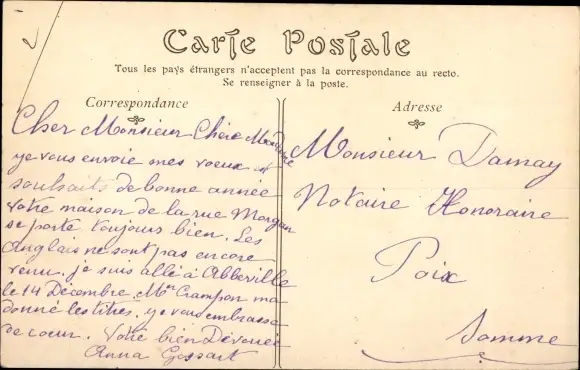 Carte Postale
Tous les pays étrangers n'acceptent pas la correspondance au recto.
Se renseigner à la poste.
Correspondance
Cher Monsieur Chère Madame
ye vous envoie mes voeux et
souhaits de bonne année
Votre maison de la rue Morgan
se porte toujours bien. Les
Anglais ne sont pas encore
venu. je suis allé à Abbeville
le 14 Décembre. Mtre Crampon ma
donné les titres. ye vous embrasse
de coeur. Votre bien Dévouée
Anna Gossart
Adresse
Monsieur Damay
Notaire Honoraire
Poix
Somme